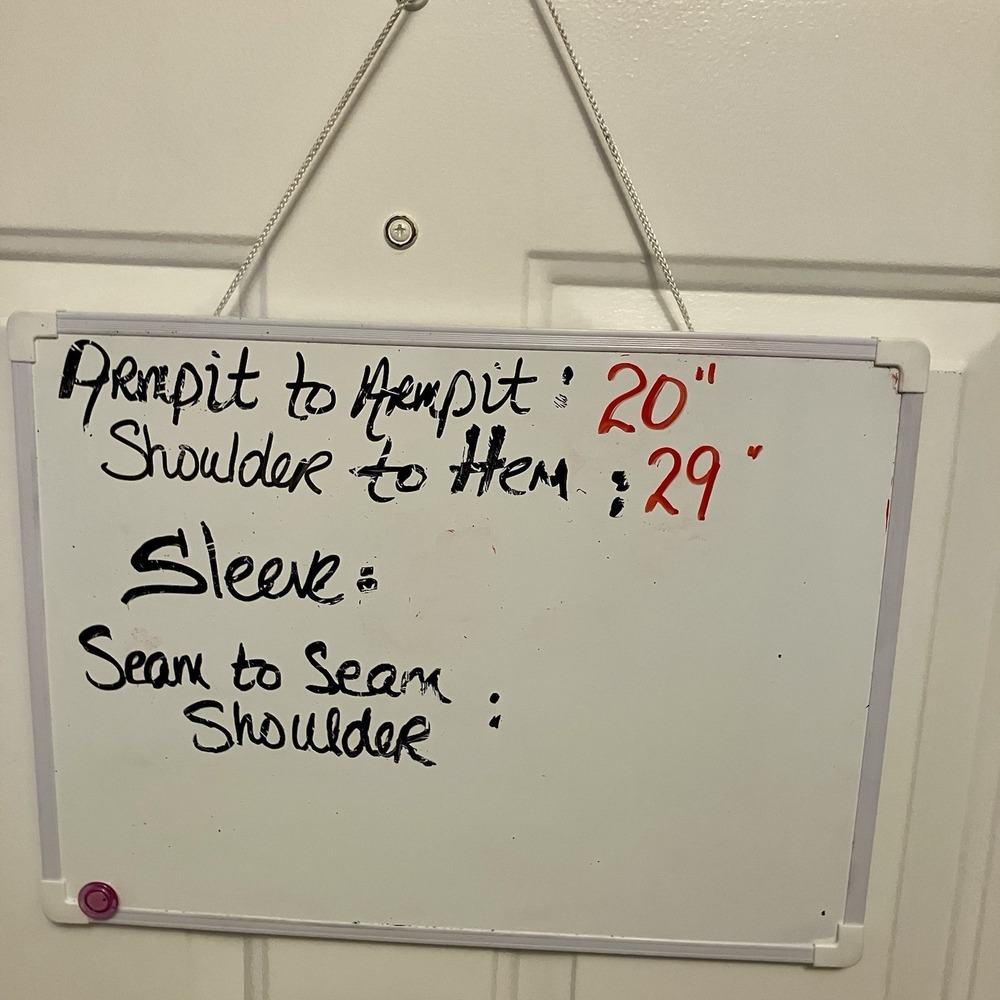 Armpit to Armpit: 20"
Shoulder to Hem: 29"
Sleeve:
Seam to Seam
Shoulder :